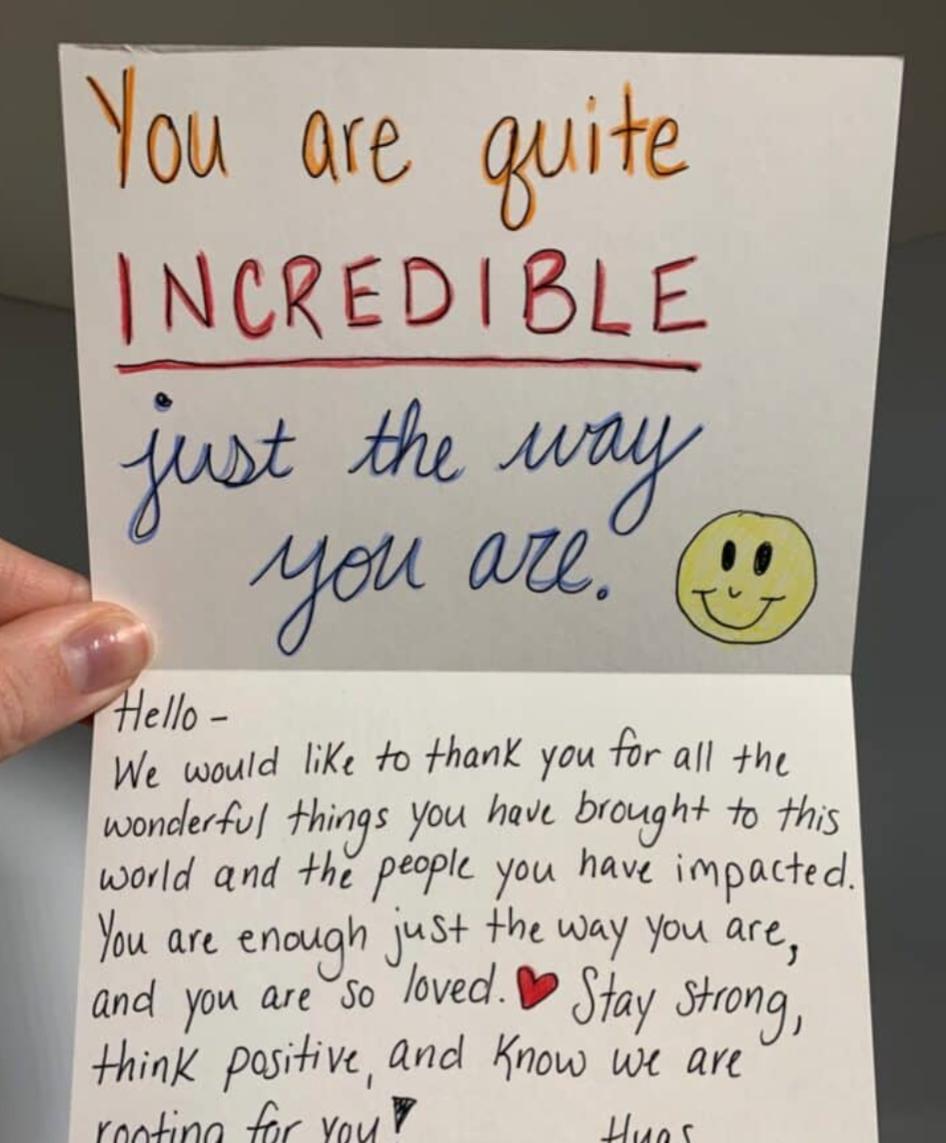 You are quite
INCREDIBLE
just the way
you are.
Hello -
We would like to thank you for all the
wonderful things you have brought to this
world and the people you have impacted.
You are enough just the way you are,
and you are so loved. ❤ Stay strong,
think positive, and know we are
rooting for you! Hugs